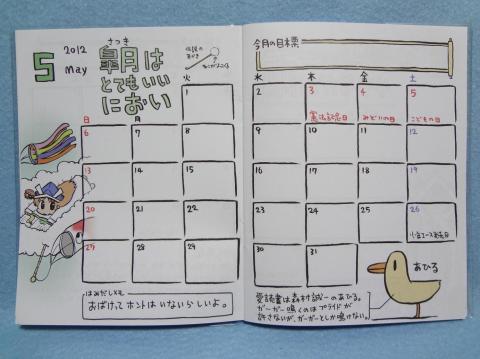 5
2012
May
さつき
皐月は
とてもいい
におい
今月の目標
日 月 火 水 木 金 土
1 2 3 4 5
憲法記念日 みどりの日 こどもの日
6 7 8 9 10 11 12
13 14 15 16 17 18 19
20 21 22 23 24 25 26
27 28 29 30 31
はみだしメモ
おばけって ホントは いないらしいよ。
あひる
愛読書は森村誠一のあひる。
ガーガー鳴くのはプライドが
許さないが、ガーガーとしか鳴けない。